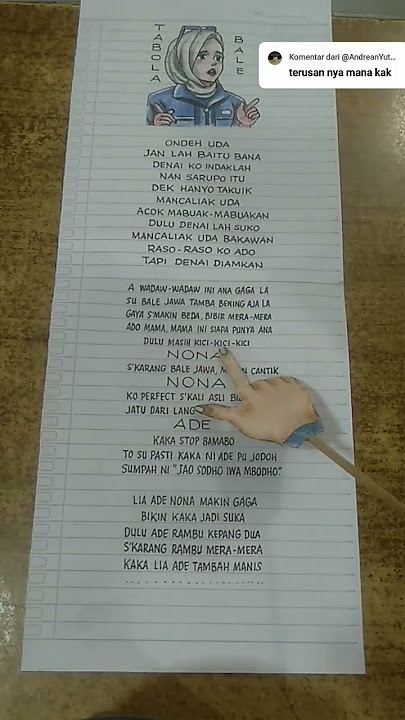 TABOLA
BALE
Komentar dari @AndreanYut...
terusan nya mana kak
ONDEH UDA
JAN LAH BAITU BANA
DENAI KO INDAKLAH
NAN SARUPO ITU
DEK HANYO TAKUIK
MANCALIAK UDA
ACOK MABUAK-MABUAKAN
DULU DENAI LAH SUKO
MANCALIAK UDA BAKAWAN
RASO-RASO KO ADO
TAPI DENAI DIAMKAN
A WADAW-WADAW INI ANA GAGA LA
SU BALE JAWA TAMBA BENING AJA LA
GAYA S'MAKIN BEDA, BIBIR MERA-MERA
ADO MAMA, MAMA INI SIAPA PUNYA ANA
DULU MASIH KICI-KICI-KICI
NONA
S'KARANG BALE JAWA, CANTIK
NONA
KO PERFECT S'KALI ASLI
JATU DARI
ADE
KAKA STOP BAMABO
TO SU PASTI KAKA NI ADE PU JODOH
SUMPAH NI "JAO SODHO IWA MBODHO"
LIA ADE NONA MAKIN GAGA
BIKIN KAKA JADI SUKA
DULU ADE RAMBU KEPANG DUA
S'KARANG RAMBU MERA-MERA
KAKA LIA ADE TAMBAH MANIS
..................